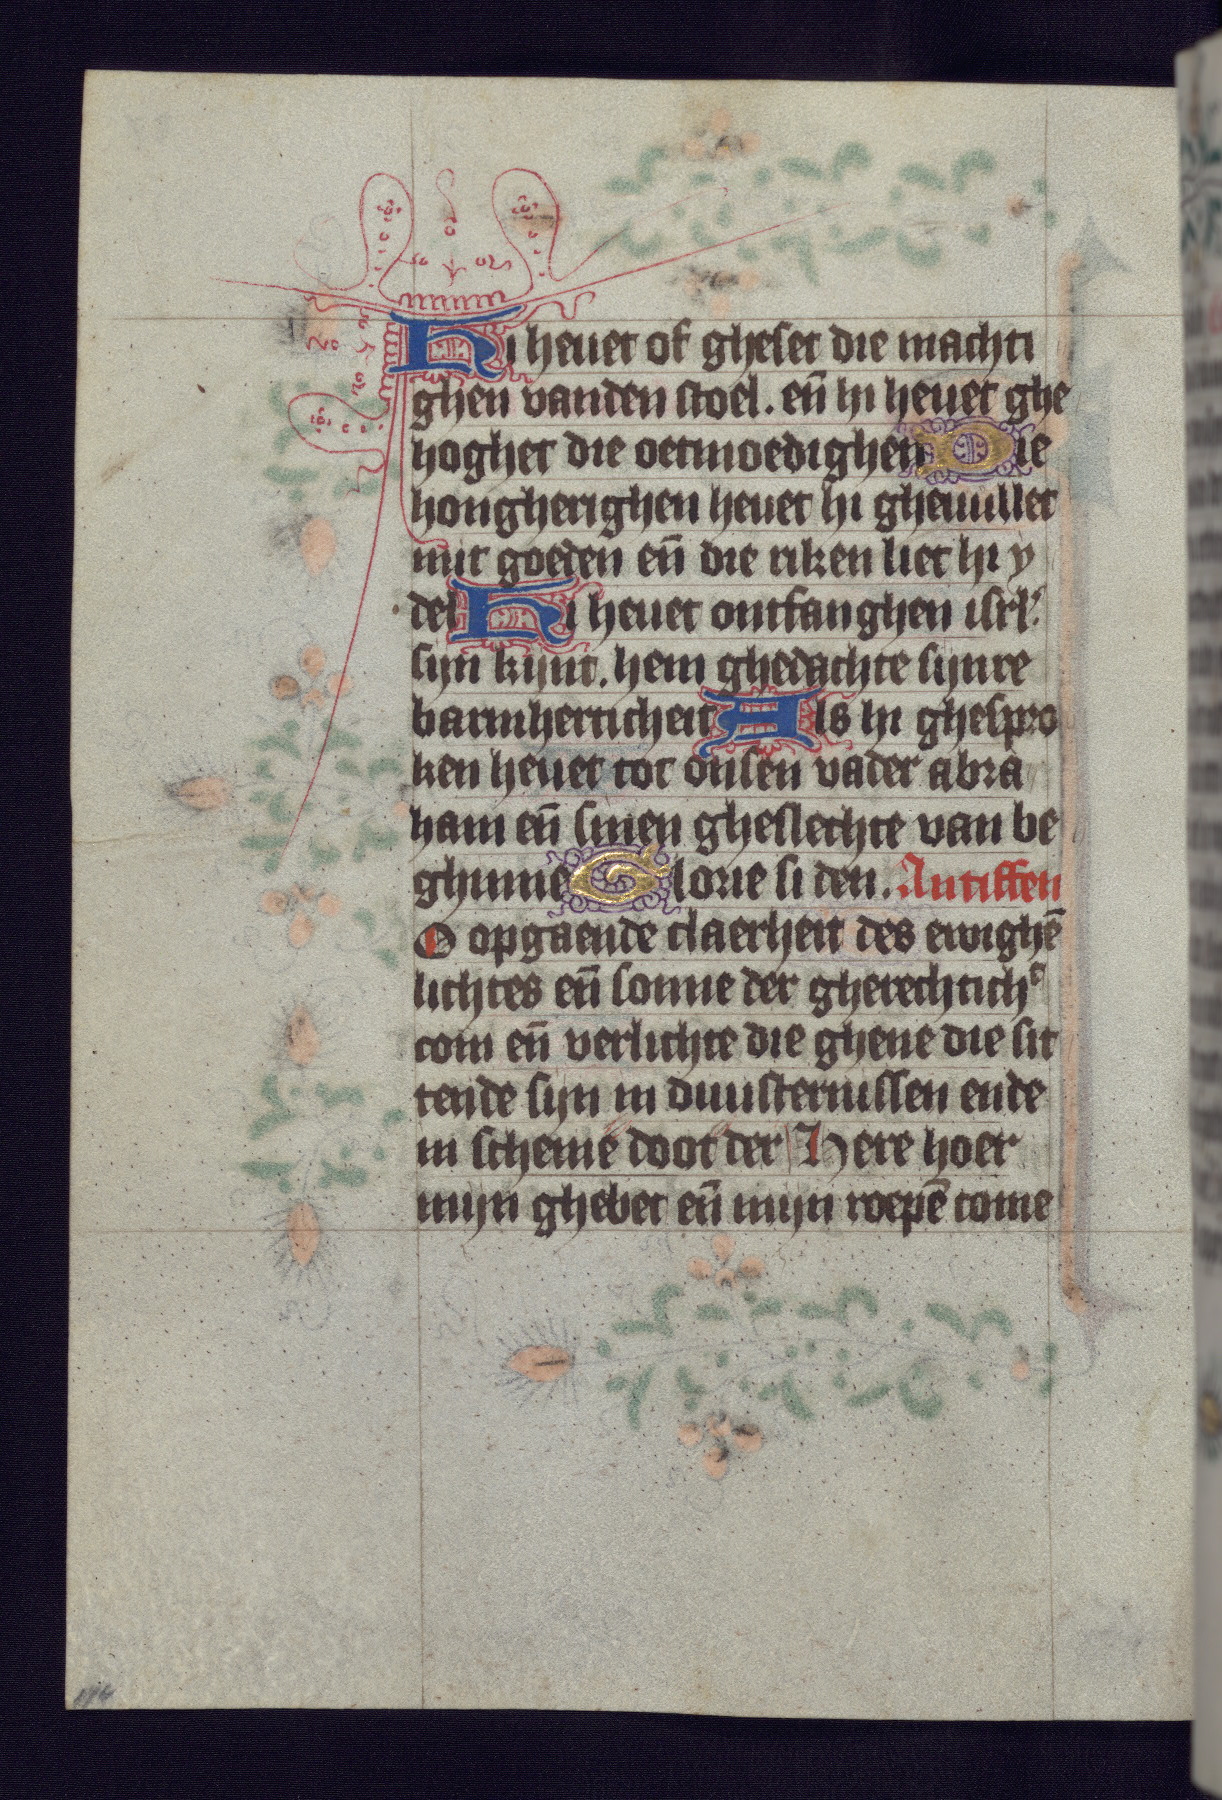 Hi heuet of gheset die machti
ghen vanden stoel. en̄ hi heuet ghe
hoghet die oetmoedighen Die
hongherighen heuet hi gheuullet
mit goeden en̄ die riken liet hi y
del Hi heuet ontfanghen isrl'
sijn kijnt. hem ghedachte sijnre
barmherticheit Als hi ghespro
ken heuet tot onsen vader abra
ham en̄ sinen gheslechte van be
ghinne Glorie si den. Antiffen
O opgaende claerheit des ewighē
lichtes en̄ sonne der gherechtichᵗ
com en̄ verlichte die ghene die sit
tende sijn in duusternissen ende
in scheme doot der Here hoer
mijn ghebet en̄ mijn roepē come